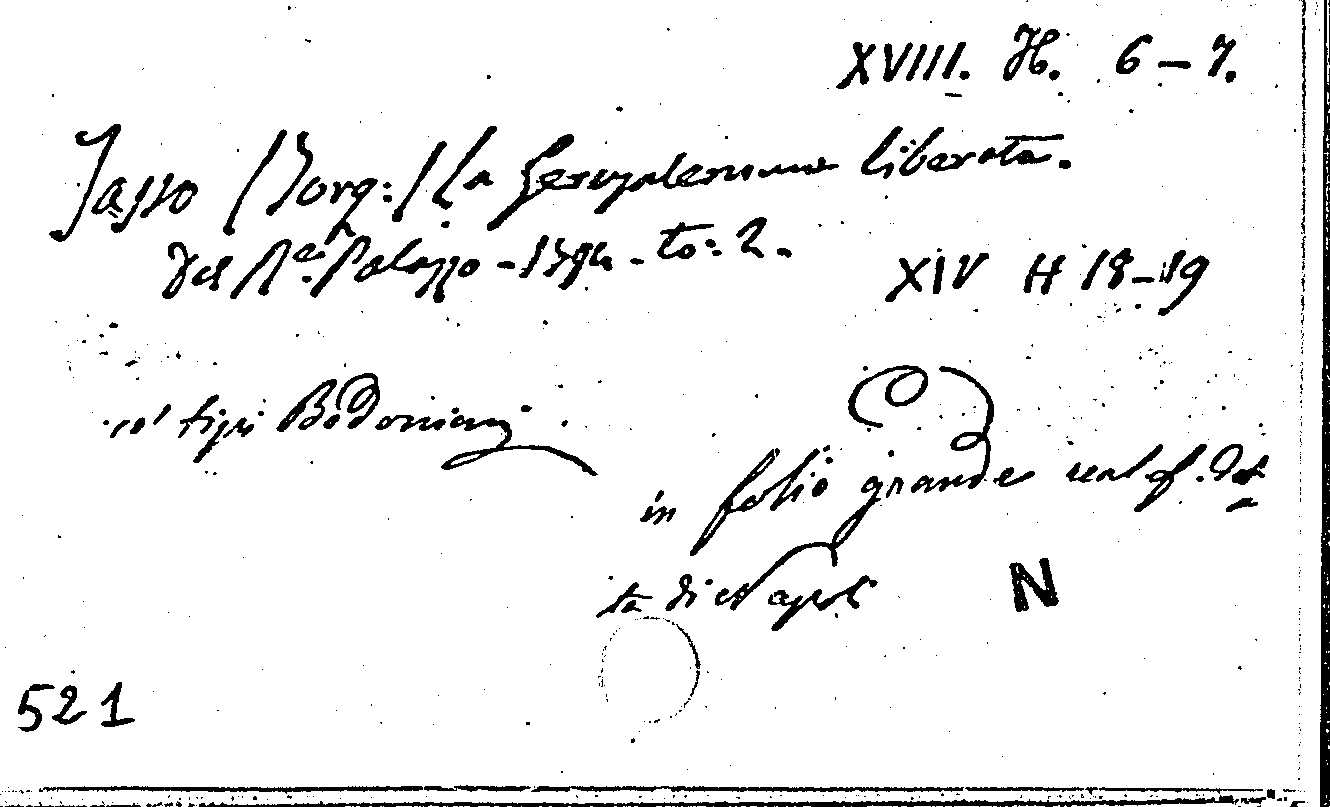 XVIII. H. 6-7.
Tasso (Torq:) La Gerusalemme liberata.
Del R. Palazzo - 1794 - to: 2.
XIV H 18-19
co' tipi Bodoniani.
in folio grande
di Napoli
N
521